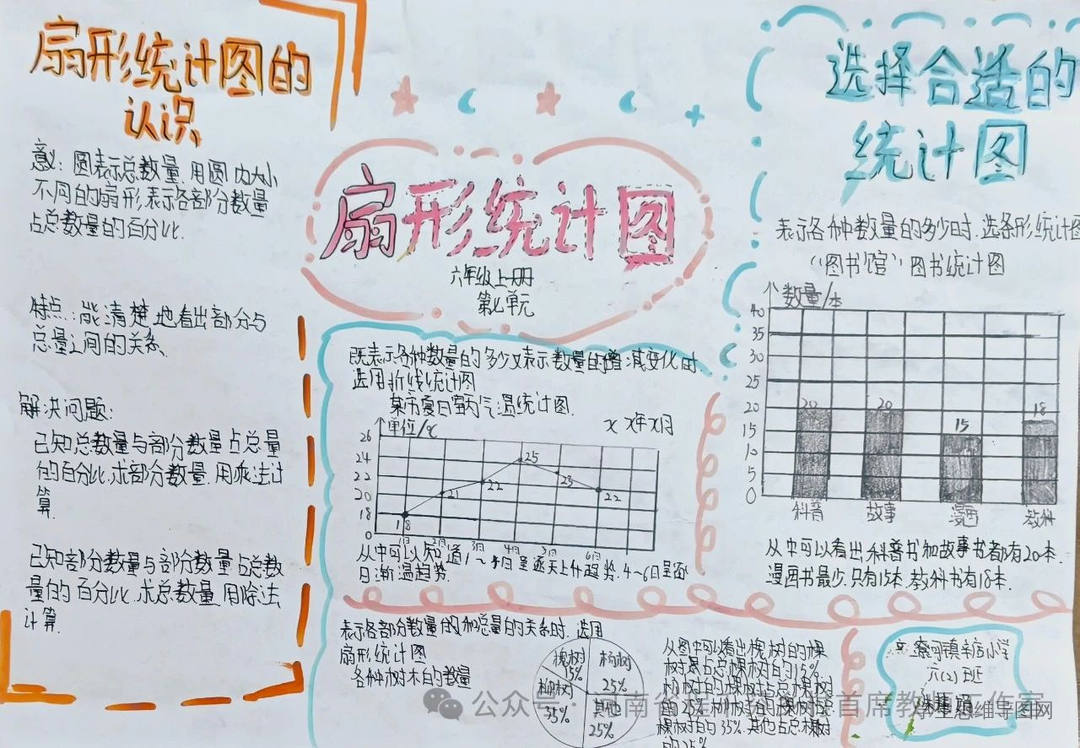 扇形统计图的
认识
意义:圆表示总数量,用圆内大小
不同的扇形表示各部分数量
占总数量的百分比.
特点:能清楚地看出部分与
总量之间的关系.
解决问题:
已知总数量与部分数量占总量
的百分比,求部分数量,用乘法计
算.
已知部分数量与部分数量占总数
量的百分比,求总数量,用除法
计算.
扇形统计图
六年级上册
第七单元
既表示各种数量的多少又表示数量的增减变化时,
选用折线统计图
某市夏日室天气温统计图.
单位/℃
X X年X月
26
24
22
20
18
0
18
21
22
25
23
22
1日 2日 3日 4日 5日 6日
从中可以知道1~4日呈逐天上升趋势.4~6日呈逐
日渐温趋势.
选择合适的
统计图
表示各种数量的多少时,选条形统计图
“图书馆”图书统计图
数量/本
40
35
30
25
20
15
10
5
0
20
20
15
18
科普 故事 漫画 教科
从中可以看出科普书和故事书都有20本.
漫画书最少,只有15本,教科书有18本.
表示各部分数量的和总量的关系时,选用
扇形统计图
各种树木的数量
槐树
15%
杨树
25%
柳树
35%
其他
25%
从图中可以看出槐树的棵
树占总棵树的15%
杨树的棵树占总棵树
的25%
棵树的35%.其他占总棵树
的25%
六(2)班
公众号
首席教
工作室
思维导图网